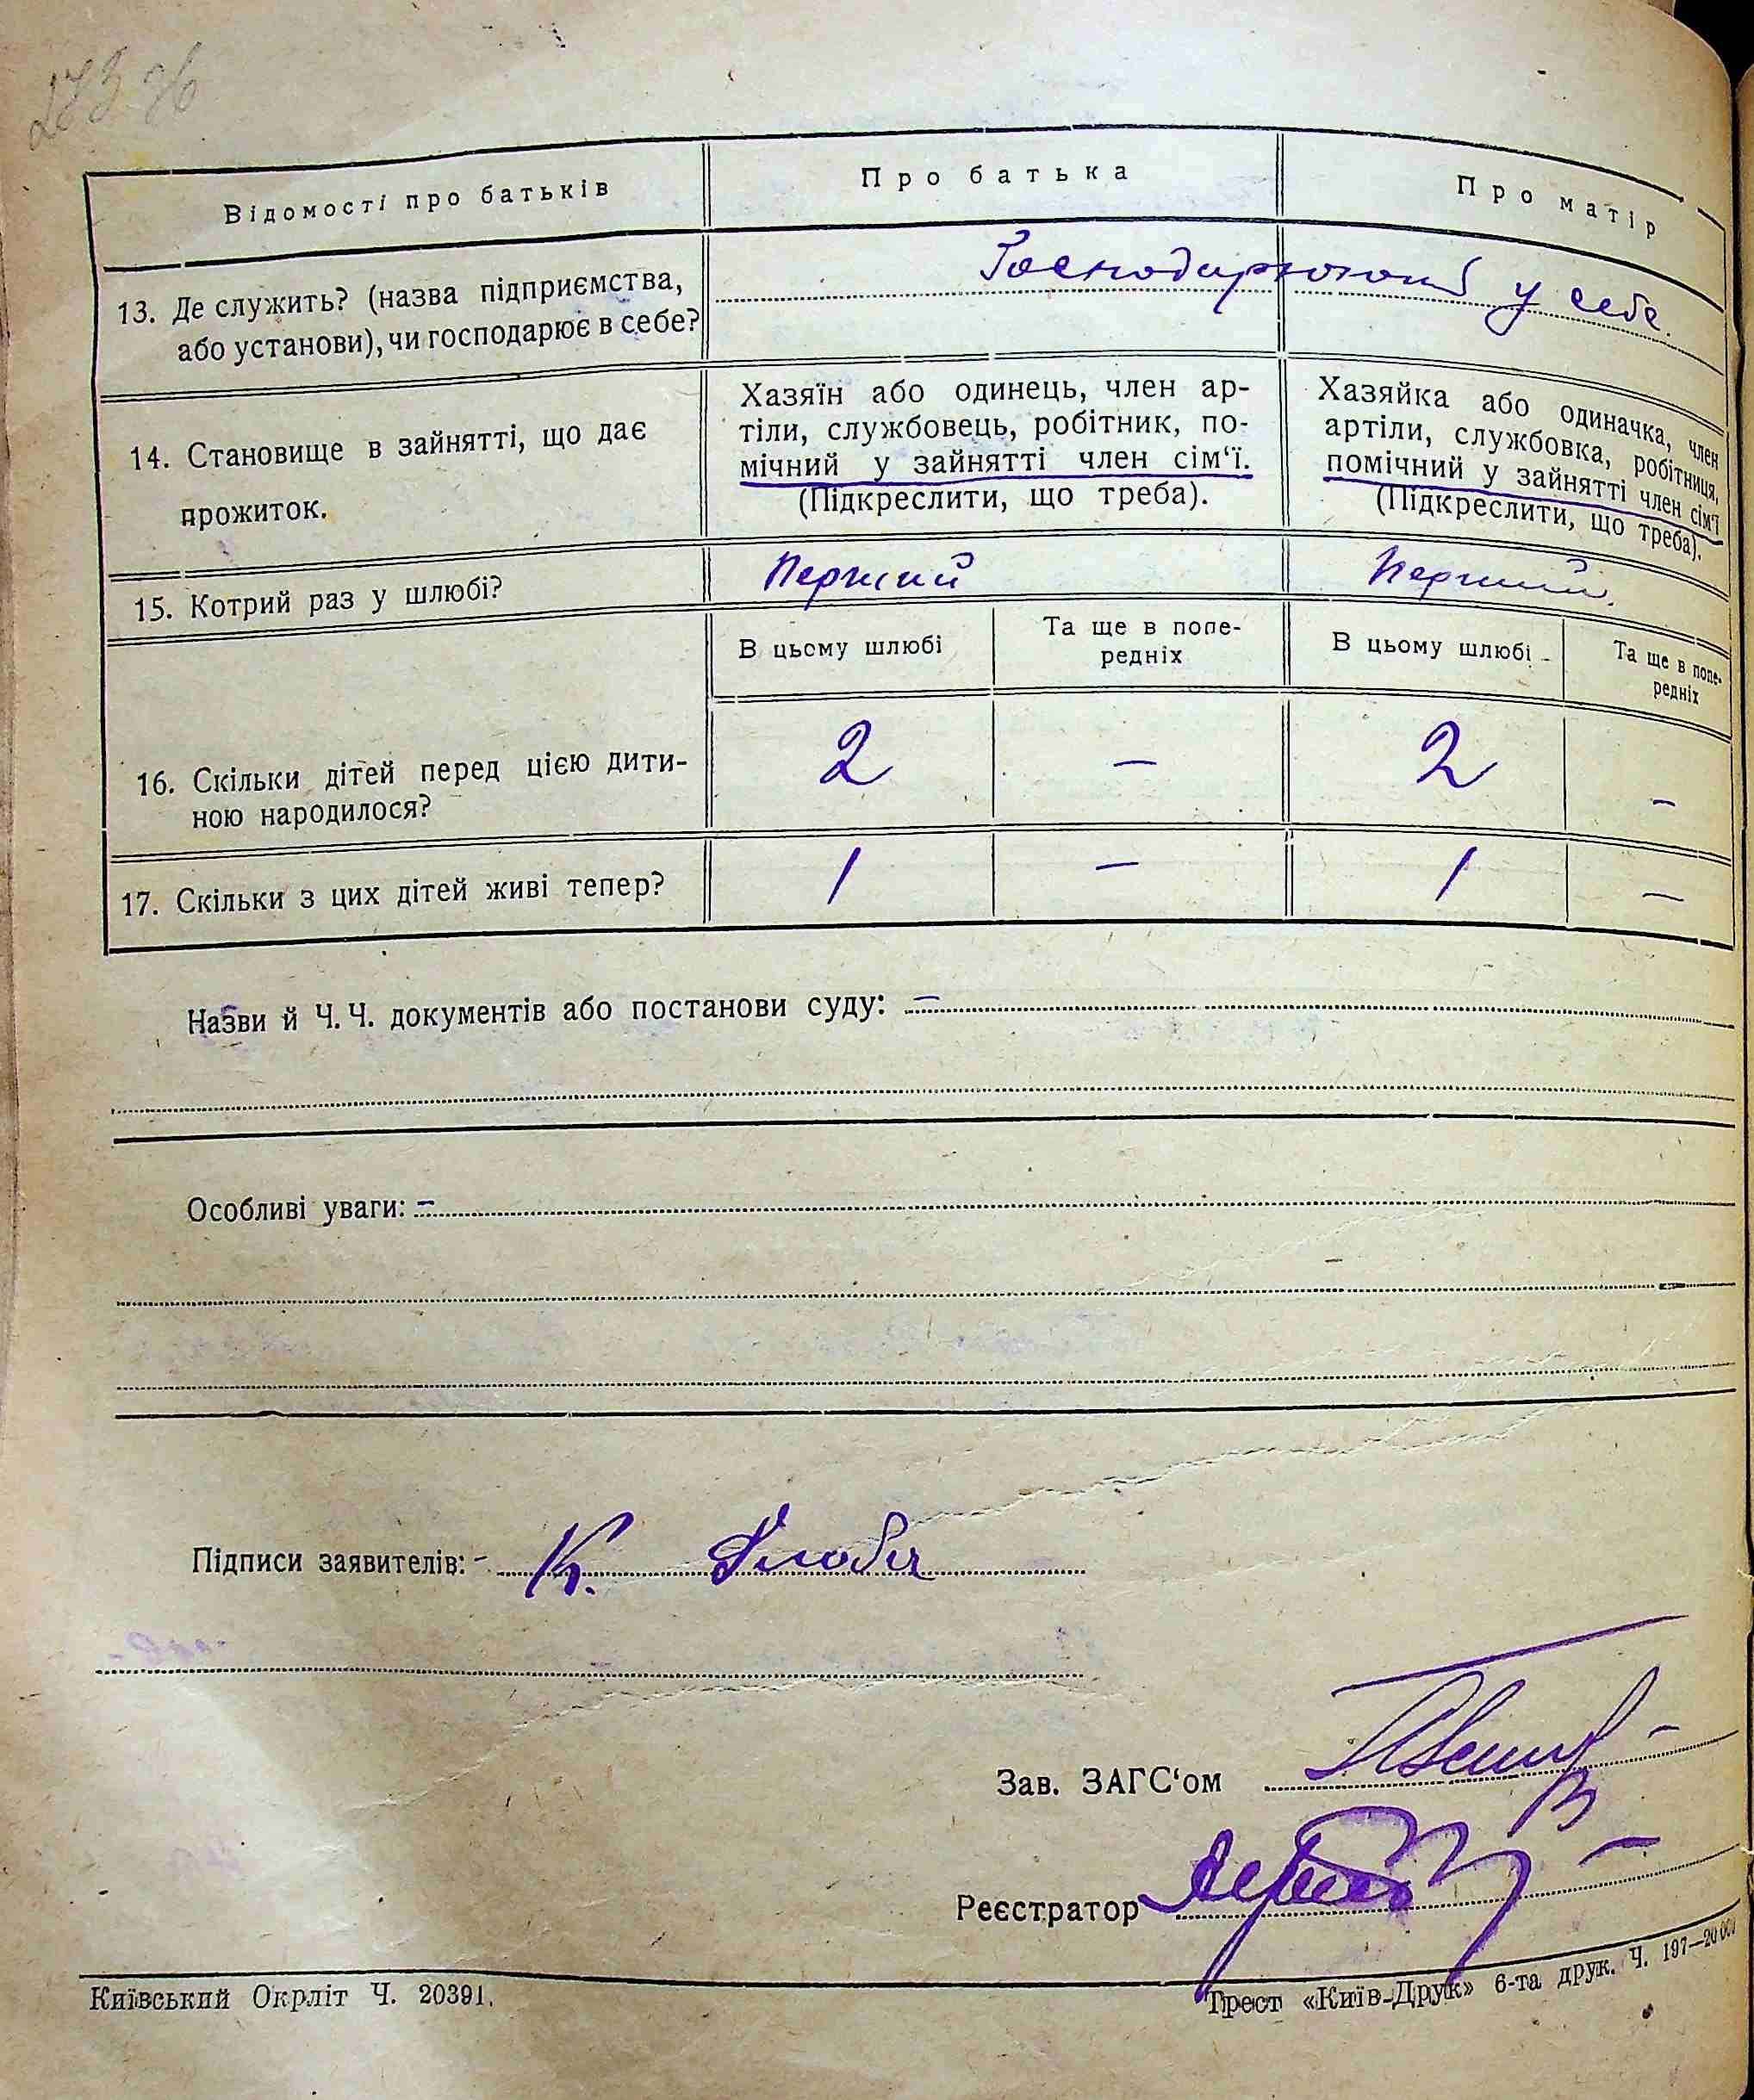 Відомості про батьків
Про батька
Про матір
13. Де служить? (назва підприємства,
або установи), чи господарює в себе?
Господарюють у себе.
14. Становище в зайнятті, що дає
прожиток.
Хазяїн або одинець, член ар-
тіли, службовець, робітник, по-
мічний у зайнятті член сім‘ї.
(Підкреслити, що треба).
Хазяйка або одиначка, член
артіли, службовка, робітниця,
помічний у зайнятті член сім‘ї
(Підкреслити, що треба).
15. Котрий раз у шлюбі?
Перший
Перший.
В цьому шлюбі
Та ще в попе-
редніх
В цьому шлюбі
Та ще в попе-
редніх
16. Скільки дітей перед цією дити-
ною народилося?
2 – 2 –
17. Скільки з цих дітей живі тепер?
1 – 1 –
Назви й Ч. Ч. документів або постанови суду: –
Особливі уваги: –
Підписи заявителів: - К.
Зав. ЗАГС‘ом
Реєстратор
Київський Окрліт Ч. 20391.
Трест «Київ-Друк» 6-та друк. Ч. 197—20000